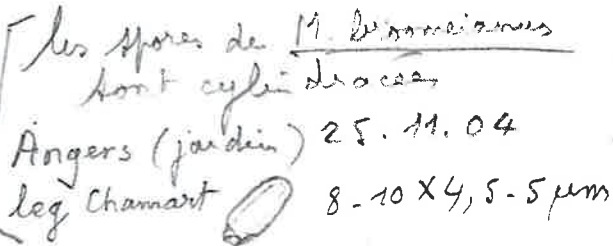 les spores de M. bresmeianus
sont cylindracées
Angers (jardin) 25.11.04
leg Chamart 8-10 X 4,5-5 µm